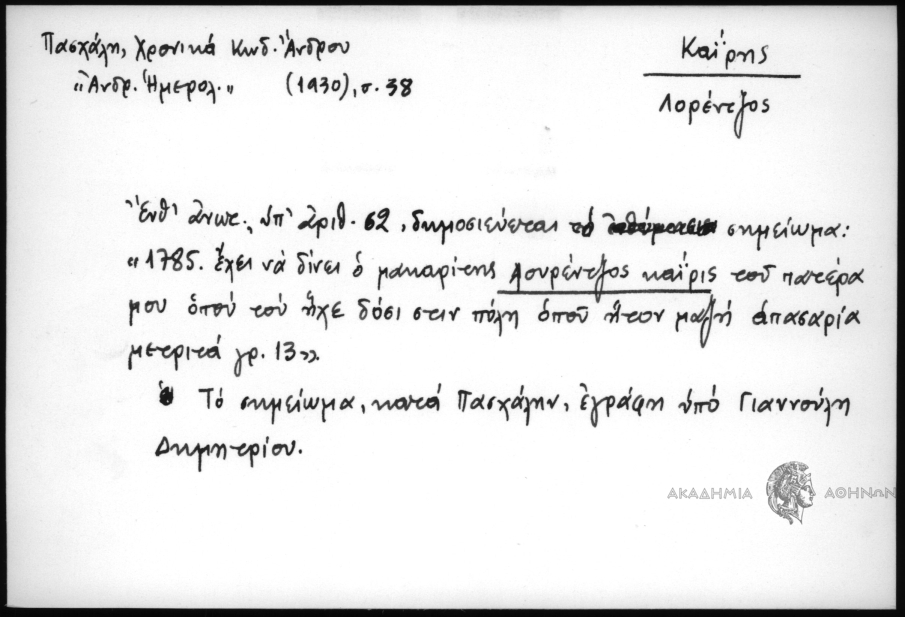 Πασχάλη, Χρονικά Κωδ. Ἄνδρου
"Ἀνδρ. Ἡμερολ." (1930), σ. 38
Καΐρης
Λορέντζος
Ἔνθ' ἄνωτ., ὑπ' ἀριθ. 62, δημοσιεύεται σημείωμα:
«1785. ἔχει νὰ δίνει ὁ μακαρίτης Λουρέντζος καΐρις τοῦ πατέρα
μου ὁποὺ τοῦ ἤχε δόσι στιν πόλη ὁποῦ ἤτον μαζή ἀπασαρία
μετριτά γρ. 13».
Τὸ σημείωμα, κατὰ Πασχάλην, ἐγράφη ὑπὸ Γιαννούλη
Δημητρίου.
ΑΚΑΔΗΜΙΑ ΑΘΗΝΩΝ